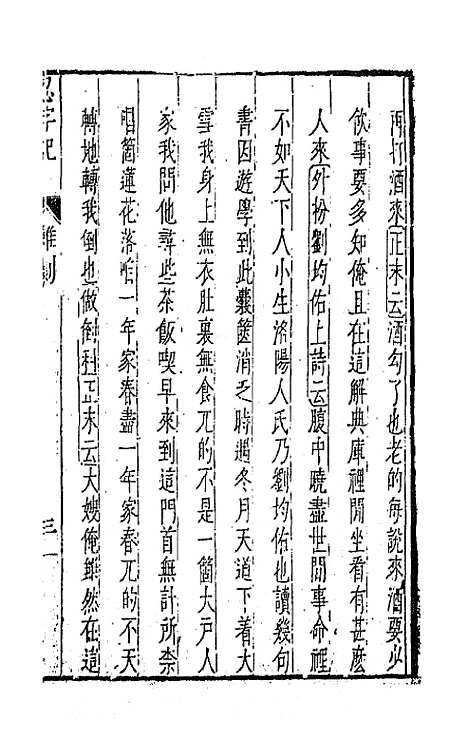 再打酒來正末云酒勾了也老的每說來酒要少
飲事要多知俺且在這解典庫裡閒坐看有甚麼
人來外扮劉均佑上詩云腹中曉盡世間事命裡
不如天下人小生洛陽人氏乃劉均佑也讀幾句
書因遊學到此囊篋消乏時遇冬月天道下着大
雪我身上無衣肚裏無食兀的不是一箇大戸人
家我問他尋些茶飯喫早來到這門首無計所柰
唱箇蓮花落咱一年家春盡一年家春兀的不天
轉地轉我倒也做倒科正末云大嫂俺雖然在這
忍字記
雜劇
三